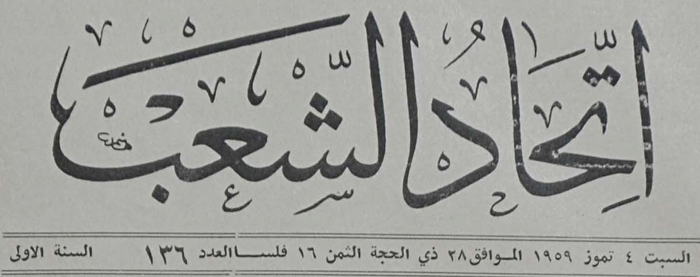 اتحاد الشعب
السبت ٤ تموز ١٩٥٩ الموافق ٢٨ ذي الحجة الثمن ١٦ فلسا العدد ١٣٦ السنة الاولى